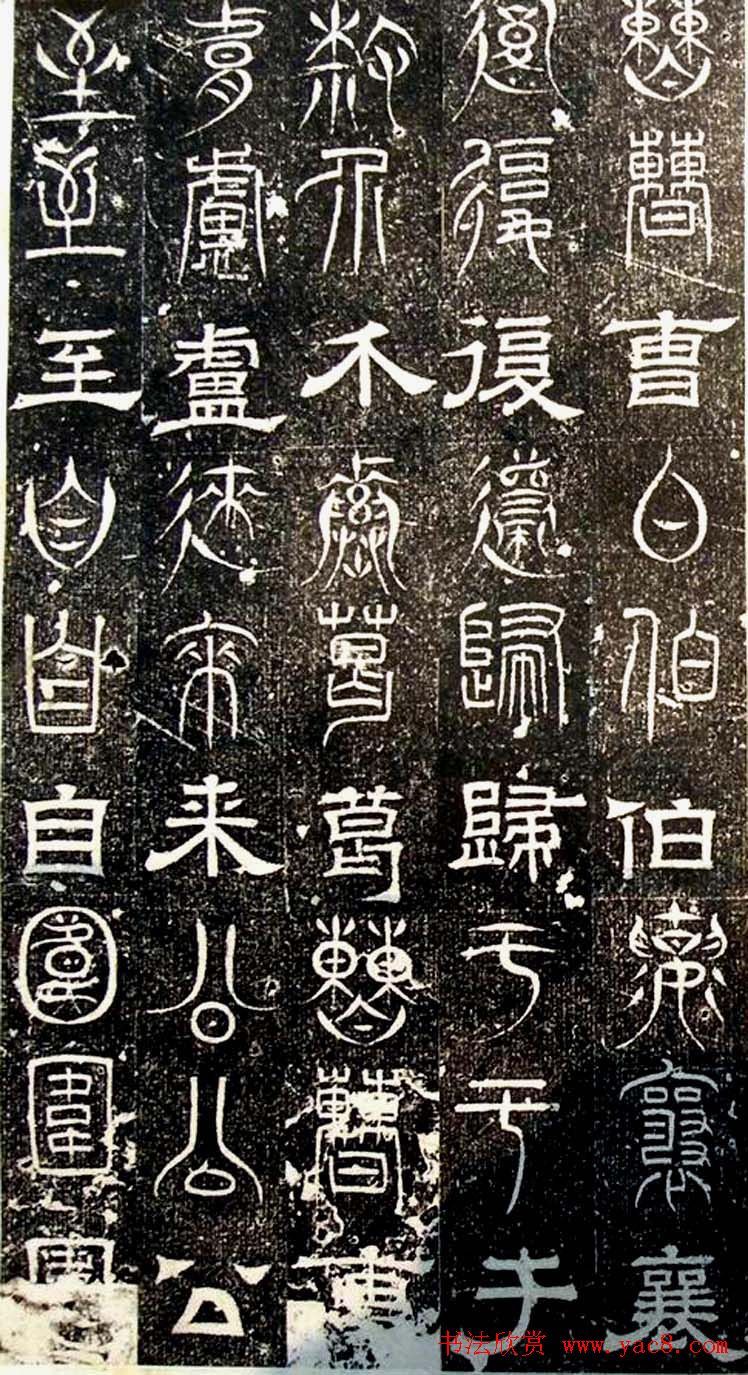 曹曹曹伯伯伯襄襄襄
復復復歸歸歸于于于
介介介葛葛葛曹曹曹
盧盧盧來來来公公公
至至至自自自圍圍圍
书法欣赏 www.yac8.com